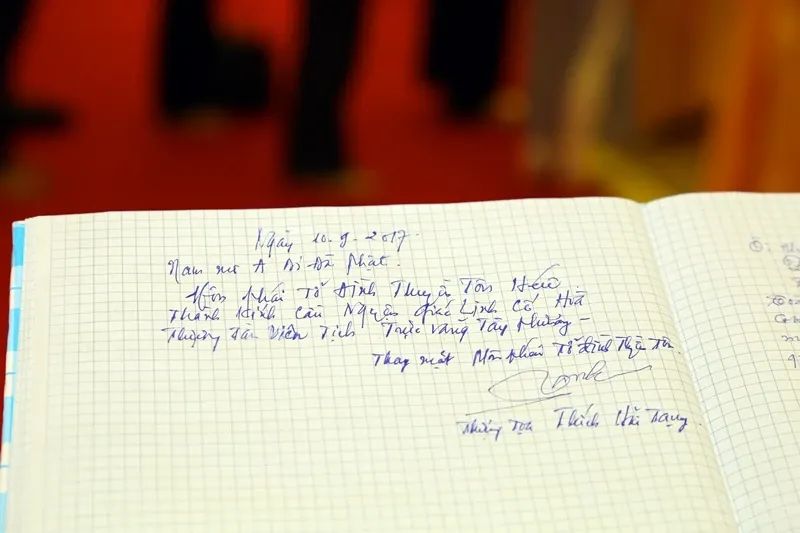 Ngày 10-9-2017.
Nam mô A Di Đà Phật.
Môn phái Tổ Đình Thuyền Tôn Huế
Thành kính cầu Nguyện Giác Linh Cố Hoà
Thượng Tân Viên Tịch Trực vãng Tây phương -
Thay mặt Môn phái Tổ đình Thuyền Tôn.
Thượng Tọa Thích Hải Tạng.